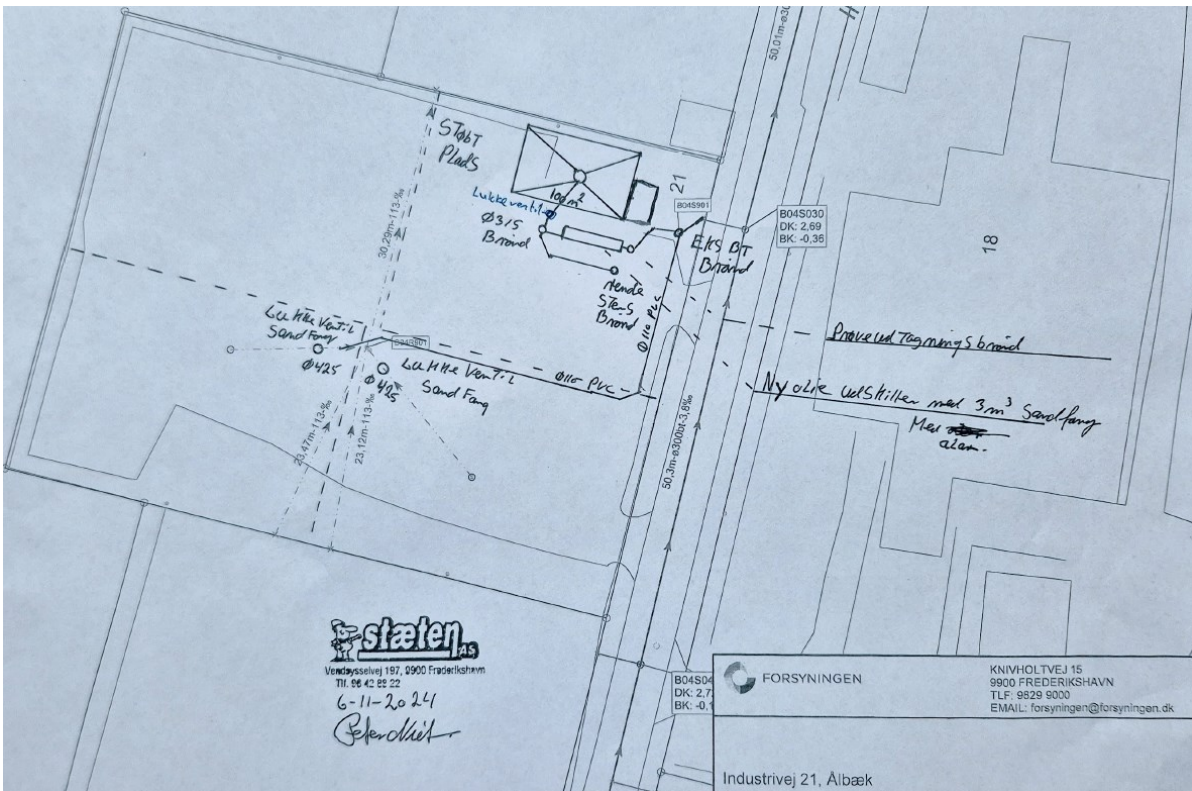 50,01m-ø30
STØbT
PladS
21
100 m²
Lukkeventil
Ø315
Brønd
B04S901
B04S030
DK: 2,69
BK: -0,36
EKS BT
Brønd
18
30,29m-113-‰
Rende
StenS
Brønd
Ø 110 PVC
Lukke Ventil
Sand Fang
Ø425
Lukke Ventil
Sand Fang
Ø425
Ø110 PVC
Prøveudtagningsbrønd
Ny olie udskiller med 3m³ Sandfang
Med
alarm.
23,47m-113-‰
23,12m-113-‰
50,3m-ø300bt-3,8‰
stæten A/S
Vendsysselvej 197, 9900 Frederikshavn
Tlf. 98 42 89 22
6-11-2024
B04S04
DK: 2,7
BK: -0,1
FORSYNINGEN
KNIVHOLTVEJ 15
9900 FREDERIKSHAVN
TLF: 9829 9000
EMAIL: forsyningen@forsyningen.dk
Industrivej 21, Ålbæk